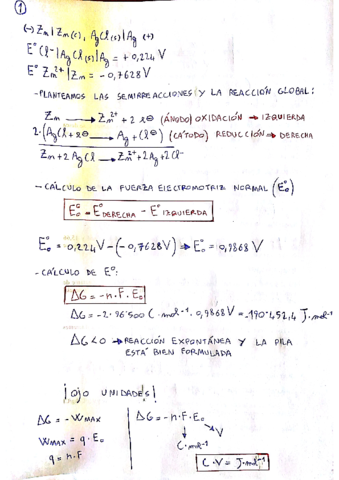 1
(-) Zn | Zn (s), AgCl (s) | Ag (+)
E° Cl⁻ | AgCl (s) | Ag = + 0,224 V
E° Zn²⁺ | Zn = - 0,7628 V
- PLANTEAMOS LAS SEMIRREACCIONES Y LA REACCIÓN GLOBAL:
Zn → Zn²⁺ + 2 e⊖ (ÁNODO) OXIDACIÓN → IZQUIERDA
2·(AgCl + e⊖ → Ag + Cl⊖) (CÁTODO) REDUCCIÓN → DERECHA
Zn + 2 AgCl → Zn²⁺ + 2Ag + 2Cl⁻
- CÁLCULO DE LA FUERZA ELECTROMOTRIZ NORMAL (E°₀)
E°₀ = E° DERECHA - E° IZQUIERDA
E°₀ = 0,224 V - (- 0,7628 V) → E°₀ = 0,9868 V
- CÁLCULO DE E°:
ΔG = - n · F · E₀
ΔG = - 2 · 96'500 C · mol⁻¹ · 0,9868 V = - 190'452,4 J · mol⁻¹
ΔG < 0 → REACCIÓN EXPONTÁNEA Y LA PILA
ESTÁ BIEN FORMULADA
¡OJO UNIDADES!
ΔG = - WMAX
WMAX = q · E₀
q = n · F
ΔG = - n · F · E₀
V
C · mol⁻¹
C · V = J · mol⁻¹